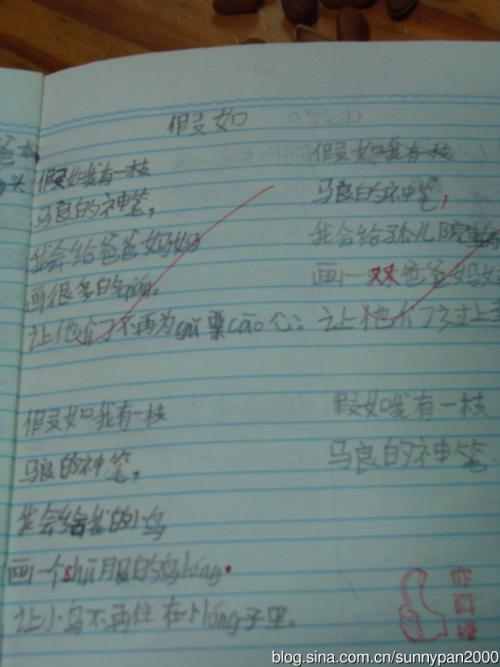 假如
假如我有一枝
马良的神笔，
我会给爸爸妈妈
让他们不再为gǔ票cāo心；
假如我有一枝
马良的神笔，
我会给孤儿院
画一双爸爸妈
让他们过上
假如我有一枝
马良的神笔，
我会给我的小鸟
画一个shū服的鸟lóng.
让小鸟不再住在小lóng子里。
假如我有一枝
马良的神笔
blog.sina.com.cn/sunnypan2000